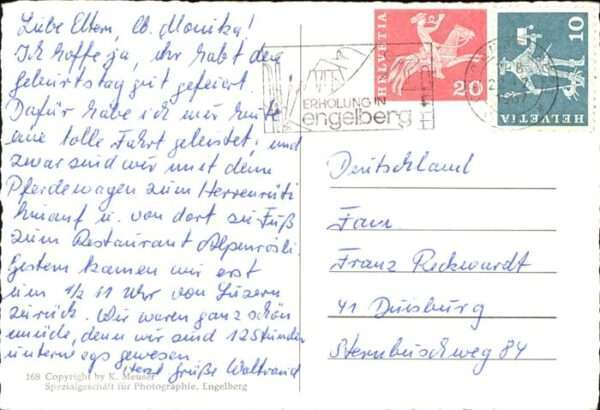 Liebe Eltern, lb. Monika!
Ich hoffe ja, ihr habt den
Geburtstag gut gefeiert.
Dafür habe ich mir heute
eine tolle Fahrt geleistet; und
zwar sind wir mit dem
Pferdewagen zum Herrenrüti
hinauf u. von dort zu Fuß
zum Restaurant Alpenrösli.
Gestern kamen wir erst
um 1/2 11 Uhr von Luzern
zurück. Wir waren ganz schön
müde, denn wir sind 12 Stunden
unterwegs gewesen
Herzl Grüße Waltraud
168 Copyright by K. Meuser
Spezialgeschäft für Photographie, Engelberg
ERHOLUNG IN
engelberg
HELVETIA
20
10
HELVETIA
Deutschland
Fam
Franz Reckwardt
41 Duisburg
Sternbuschweg 84